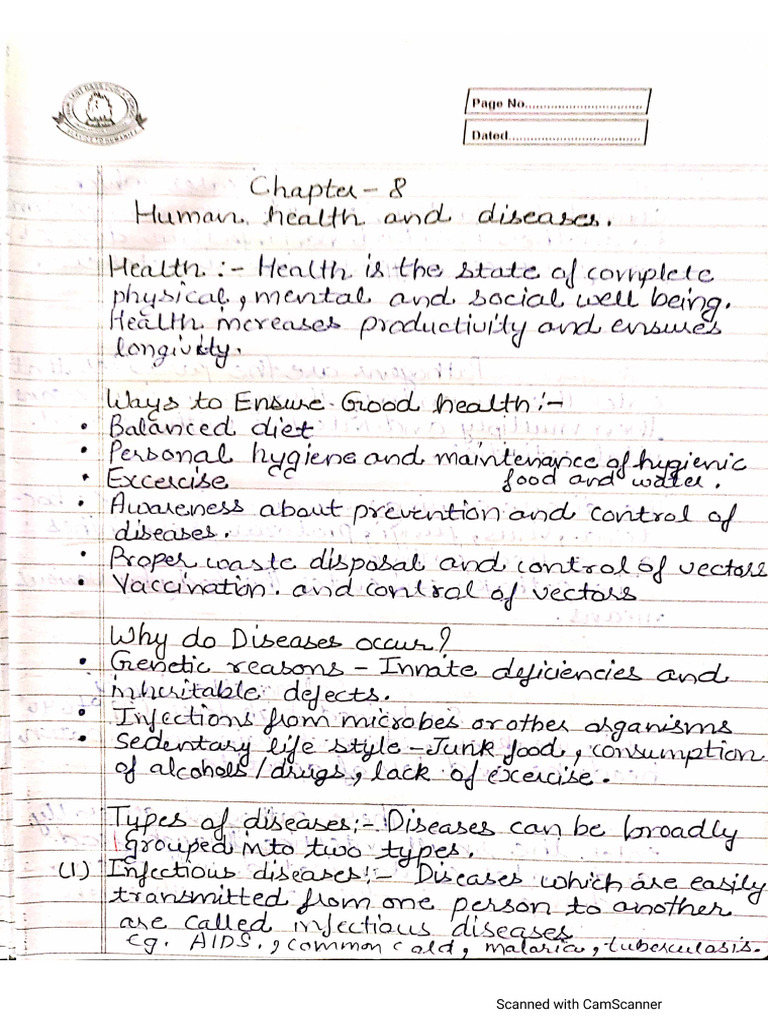 Page No.
Dated
Chapter - 8
Human health and diseases.
Health :- Health is the state of complete
physical, mental and social well being.
Health increases productivity and ensures
longivity.
Ways to Ensure Good health :-
• Balanced diet
• Personal hygiene and maintenance of hygienic
• Excercise food and water.
• Awareness about prevention and control of
diseases.
• Proper waste disposal and control of vectors
• Vaccination. and control of vectors
Why do Diseases occur?
• Genetic reasons - Innate deficiencies and
inheritable defects.
• Infections from microbes or other organisms
• Sedentary life style - Junk food, consumption
of alcohols/drugs, lack of excercise.
Types of diseases :- Diseases can be broadly
grouped into two types.
(1) Infectious diseases :- Diseases which are easily
transmitted from one person to another
are called infectious diseases
eg. AIDS., common cold, malaria, tuberculosis.
Scanned with CamScanner